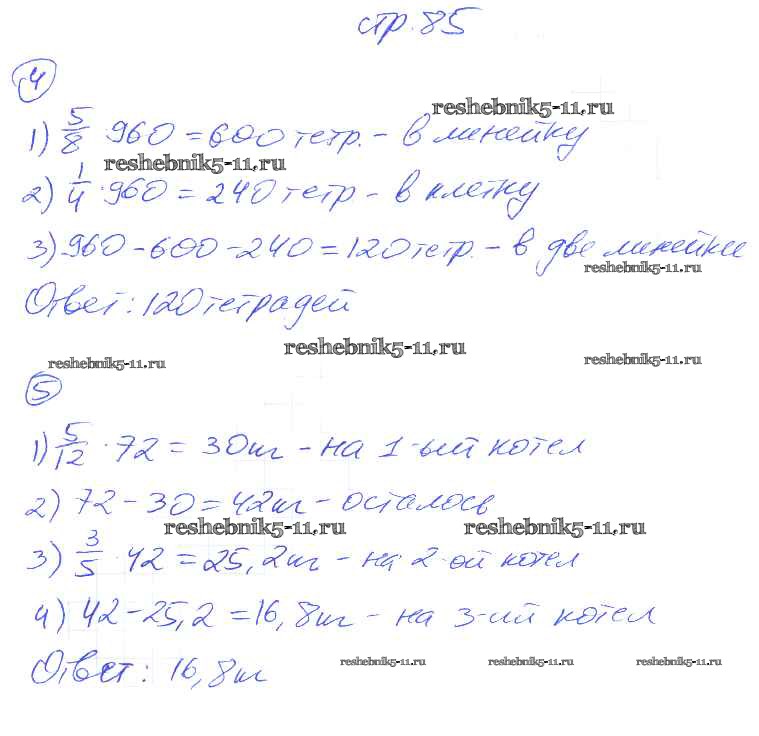 стр. 85
4
reshebnik5-11.ru
1) 5/8 · 960 = 600 тетр. - в линейку
reshebnik5-11.ru
2) 1/4 · 960 = 240 тетр - в клетку
3) 960 - 600 - 240 = 120 тетр. - в две линейки
reshebnik5-11.ru
Ответ: 120 тетрадей
reshebnik5-11.ru
reshebnik5-11.ru reshebnik5-11.ru
5
1) 5/12 · 72 = 30 кг - на 1-ый котел
2) 72 - 30 = 42 кг - осталось
reshebnik5-11.ru reshebnik5-11.ru
3) 3/5 · 42 = 25,2 кг - на 2-ой котел
4) 42 - 25,2 = 16,8 кг - на 3-ий котел
Ответ: 16,8 кг
reshebnik5-11.ru reshebnik5-11.ru reshebnik5-11.ru